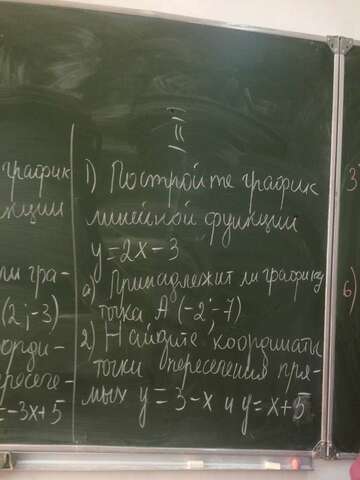 II
1) Постройте график
линейной функции
y=2x-3
а) Принадлежит ли графику
точка А (-2;-7)
2) Найдите координаты
точки пересечения пря-
мых y=3-x и y=x+5
график
нкции
ли гра-
(2;-3)
орди-
ересече-
=-3x+5
3
6)